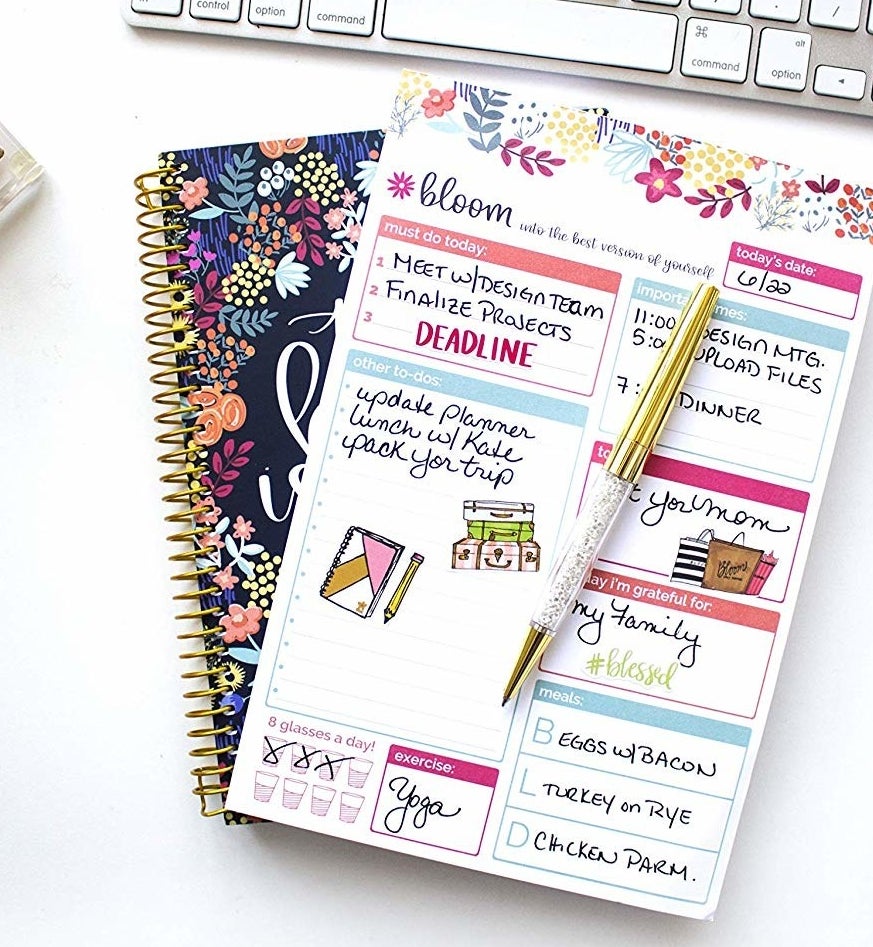 control
option
command
⌘
command
alt
option
bloom into the best version of yourself
must do today:
1 MEET w/DESIGN TEAM
2 FINALIZE PROJECTS
3 DEADLINE
today's date:
6/22
11:00 DESIGN MTG.
UPLOAD FILES
DINNER
other to-dos:
update planner
lunch w/ Kate
pack for trip
mom
Bloom
I'm grateful for:
my Family
#blessed
meals:
B EGGS w/BACON
L TURKEY on RYE
D CHICKEN PARM.
8 glasses a day!
exercise:
Yoga